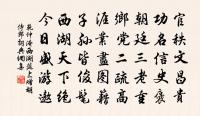 官秩文昌貴
功名信史褒
朝廷三老重
鄉黨二疏高
生涯盡圖籍
子孫皆俊髦
西湖天下景
今日盛游遨
范仲淹西湖筵上贈胡
侍郎詞典網集